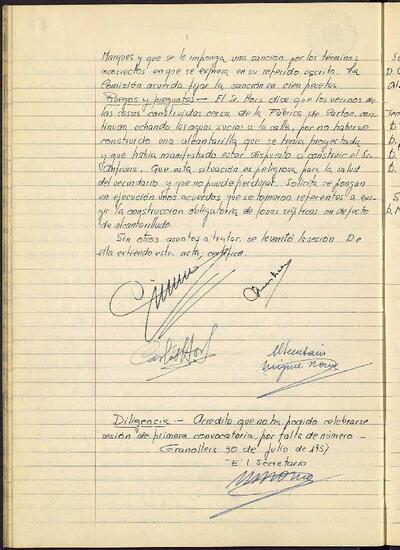 Marques y que se le imponga una sanción por los términos
incorrectos en que se expresa en su referido escrito. La
Comisión acuerda fijar la sanción en cien pesetas.
Ruegos y preguntas — El Sr. Hors dice que los vecinos de
las casas construidas cerca de la Fábrica de Carton, con-
tinuan echando las aguas sucias a la calle, por no haberse
construido una alcantarilla que se tenia proyectada
y que habia manifestado estar dispuesto a construir el Sr.
Que esta situación es peligrosa para la salud
del vecindario y que no puede perdurar. Solicita se pongan
en ejecución unos acuerdos que se tomaron referentes a exi-
gir la construcción obligatoria de fosas sépticas en defecto
de alcantarillado.
Sin otros asuntos a tratar, se levantó la sesión. De
ella extiendo esta acta, certifico.
Carlos Hors
El Secretario
Diligencia — Acredito que no ha podido celebrarse
sesión de primera convocatoria por falta de número.—
Granollers 30 de julio de 1957
El Secretario